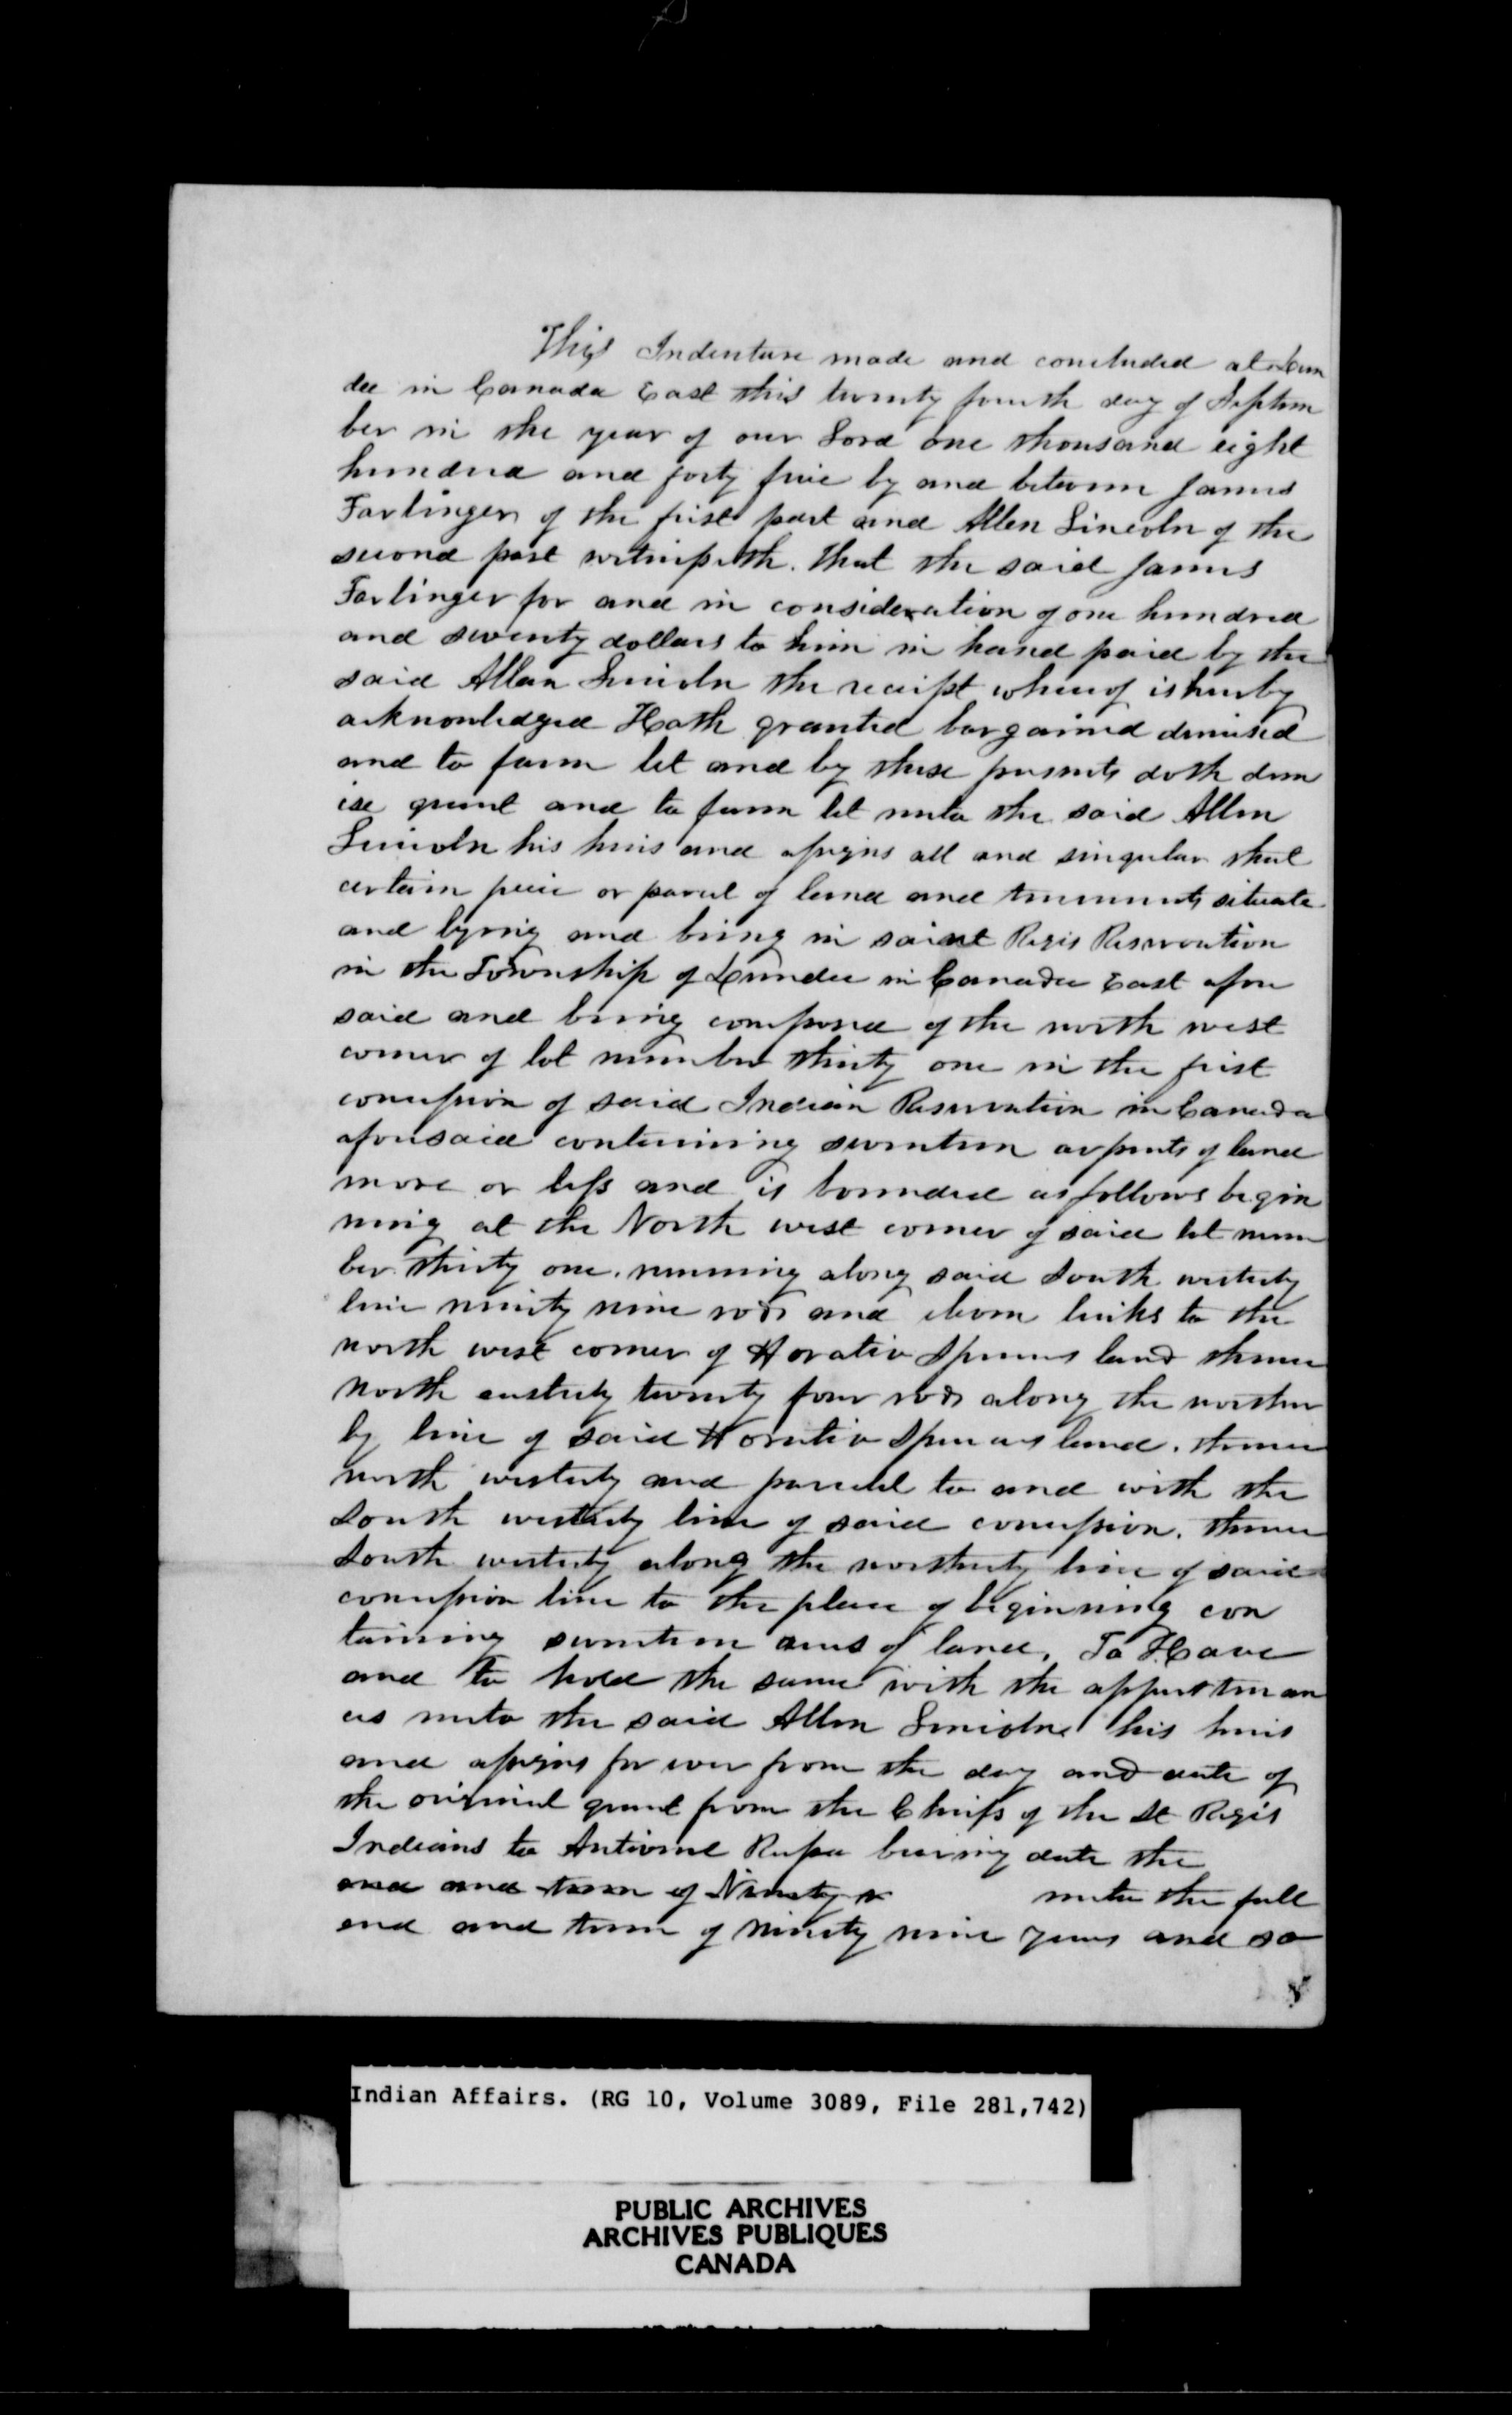 This Indenture made and concluded at Dun
dee in Canada East this twenty fourth day of Septem
ber in the year of our Lord one thousand eight
hundred and forty five by and between James
Farlinger of the first part and Allen Lincoln of the
second part witnesseth. that the said James
Farlinger for and in consideration of one hundred
and seventy dollars to him in hand paid by the
said Allan Lincoln the receipt whereof is hereby
acknowledged Hath granted bargained demised
and to farm let and by these presents doth dem
ise grant and to farm let unto the said Allen
Lincoln his heirs and assigns all and singular that
certain piece or parcel of land and tenements situate
and lying and being in saint Regis Reservation
in the Township of Dundee in Canada East afore
said and being composed of the north west
corner of lot number thirty one in the first
concession of said Indian Reservation in Canada
aforesaid containing seventeen arpents of land
more or less and is bounded as follows begin
ning at the North west corner of said lot num
ber thirty one. running along said South westerly
line ninety nine rods and eleven links to the
north west corner of Horatio Spencers land thence
North easterly twenty four rods along the norther
ly line of said Horatio Spencers land. thence
north westerly and parallel to and with the
South westerly line of said concession. thence
South westerly along the northerly line of said
concession line to the place of beginning con
taining seventeen acres of land, To Have
and to hold the same with the appurtenan
ces unto the said Allen Lincoln his heirs
and assigns for ever from the day and date of
the original grant from the Chiefs of the St Regis
Indians to Antione bearing date the
end and term of Ninety n unto the full
end and term of ninety nine years and so
Indian Affairs. (RG 10, Volume 3089, File 281,742)
PUBLIC ARCHIVES
ARCHIVES PUBLIQUES
CANADA